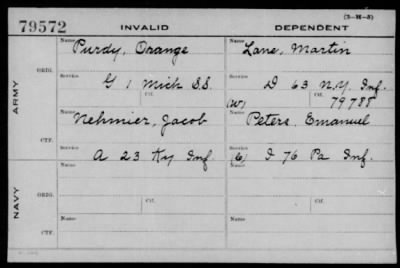 (3-H-5)
79572 INVALID DEPENDENT
Name Purdy, Orange Name Lane, Martin
ORIG.
Service G 1 Mich S.S. Service D 63 N.Y. Inf.
Ctf. (W) Ctf. 79788
ARMY
Name Nehmier, Jacob Name Peters, Emanuel
CTF.
Service A 23 Ky Inf. Service I 76 Pa Inf.
NAVY
Name Name
ORIG.
Ctf. Ctf.
Name Name
CTF.